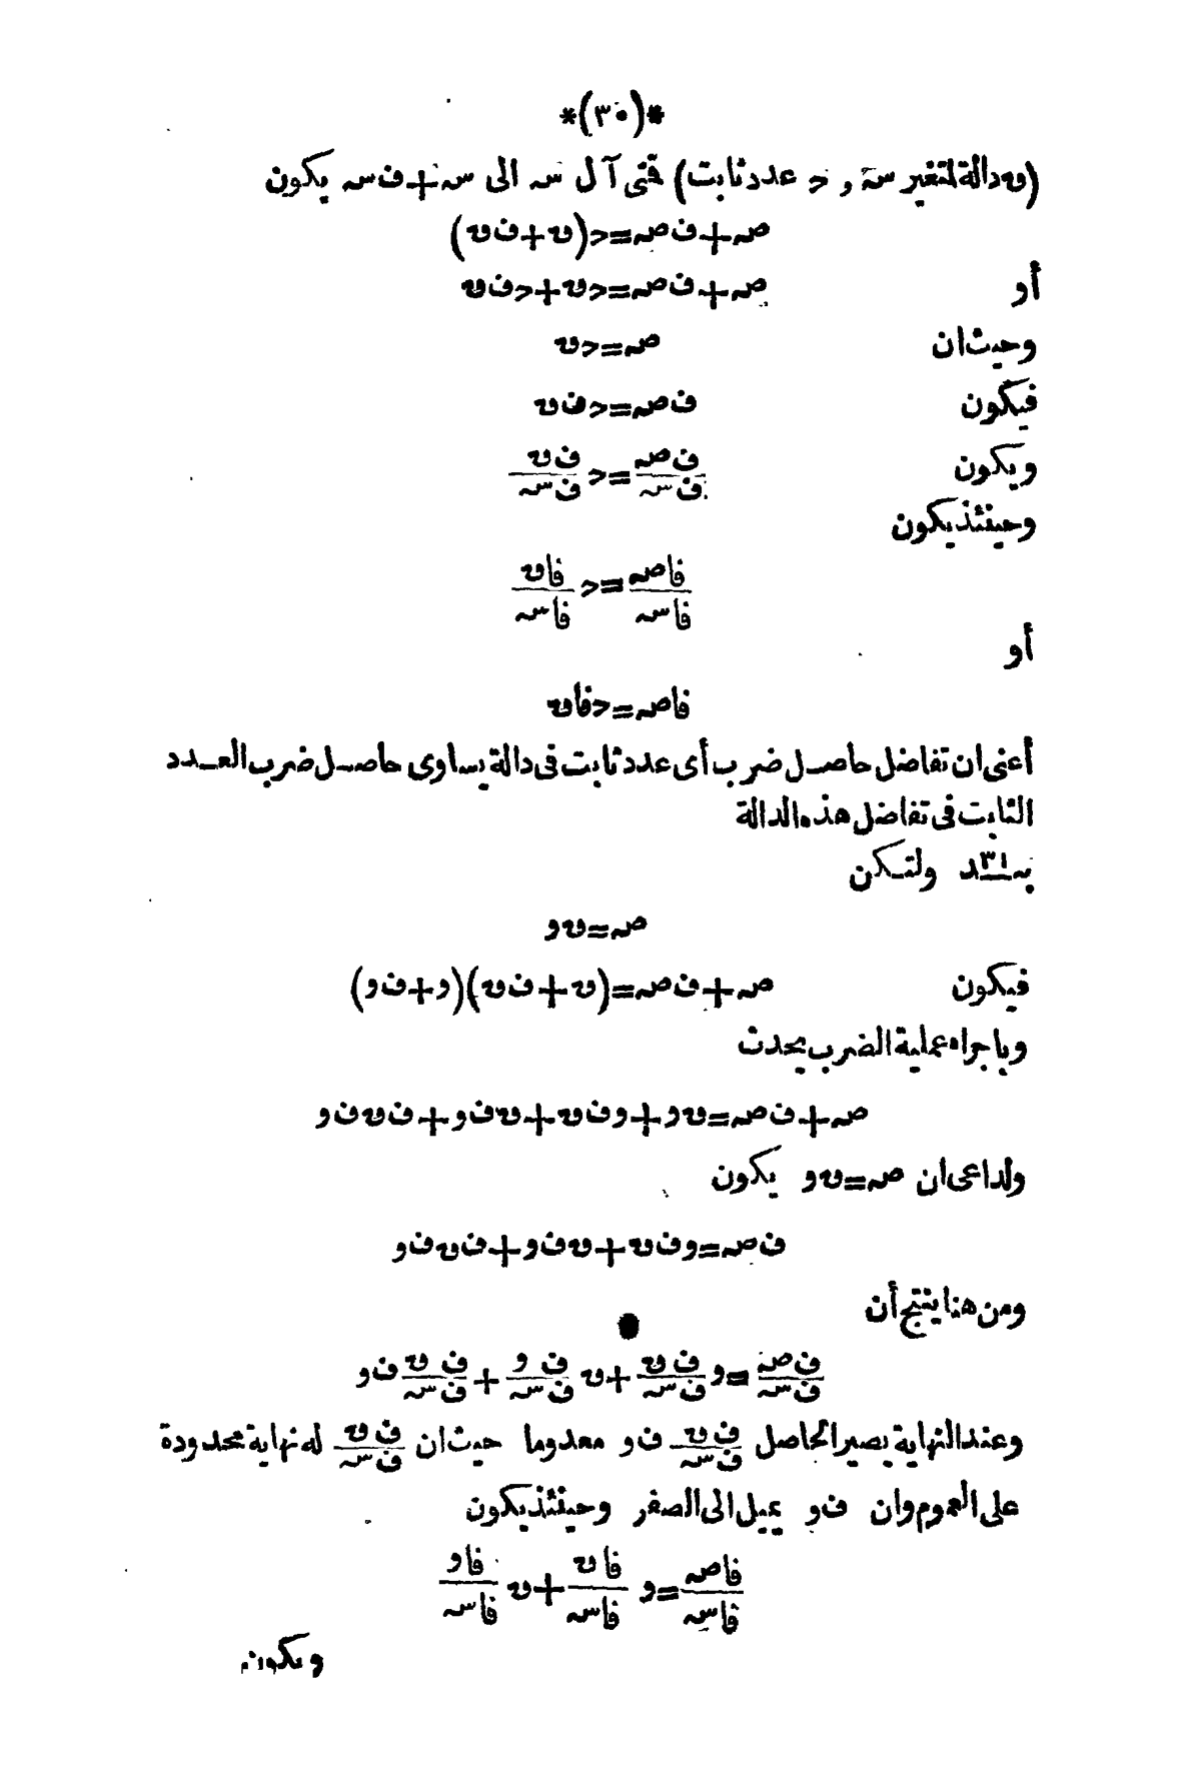 *(٣٠)*
(ں دالة لمتغير سہ و ح عدد ثابت) فتى آل سہ الى سہ + ف سہ يكون
صہ + ف صہ = ح(ں + ف ں)
أو صہ + ف صہ = ح ں + ح ف ں
وحيث ان صہ = ح ں
فيكون ف صہ = ح ف ں
ويكون ف صہ/ف سہ = ح ف ں/ف سہ
وحينئذ يكون
فا صہ/فا سہ = ح فا ں/فا سہ
أو
فا صہ = ح فا ں
أعنى ان تفاضل حاصل ضرب أى عدد ثابت فى دالة يساوى حاصل ضرب العدد
الثابت فى تفاضل هذه الدالة
بـ٣١ـد ولتكن
صہ = ں و
فيكون صہ + ف صہ = (ں + ف ں)(و + ف و)
وباجراء عملية الضرب يحدث
صہ + ف صہ = ں و + و ف ں + ں ف و + ف ں ف و
ولداعى ان صہ = ں و يكون
ف صہ = و ف ں + ں ف و + ف ں ف و
ومن هنا ينتج أن
ف صہ/ف سہ = و ف ں/ف سہ + ں ف و/ف سہ + ف ں/ف سہ ف و
وعند النهاية يصير الحاصل ف ں/ف سہ ف و معدوما حيث ان ف ں/ف سہ له نهاية محدودة
على العموم وان ف و يميل الى الصفر وحينئذ يكون
فا صہ/فا سہ = و فا ں/فا سہ + ں فا و/فا سہ
ويكون